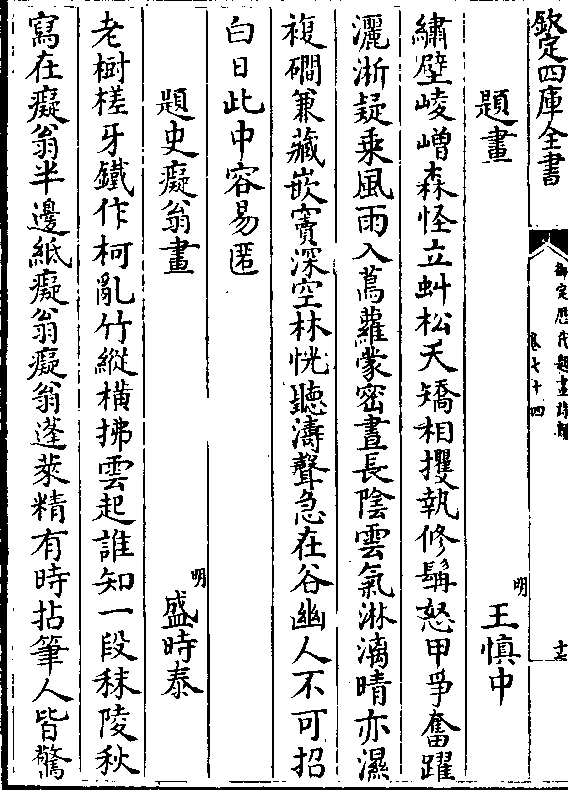 欽定四庫全書
御定歷代題畫詩類
卷七十四
題畫
明
王慎中
繡壁崚嶒森怪立虯松夭矯相攫執修髯怒甲爭奮躍
灑淅疑乗風雨入蔦蘿蒙密晝長陰雲氣淋漓晴亦濕
複磵兼藏嵌竇深空林恍聽濤聲急在谷幽人不可招
白日此中容易匿
題史癡翁畫
明
盛時泰
老樹槎牙鐵作柯亂竹縱橫拂雲起誰知一段秣陵秋
寫在癡翁半邊紙癡翁癡翁蓬萊精有時拈筆人皆驚